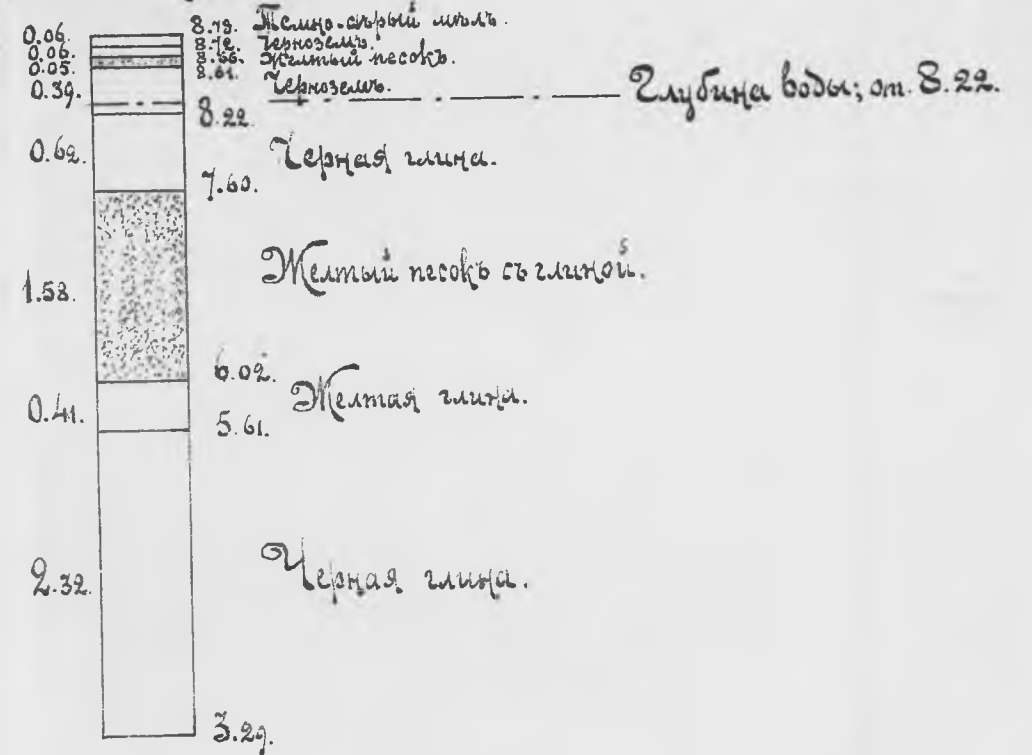 0.06. 8.78. Темно-сѣрый илъ.
0.06. 8.72. Черноземъ.
0.05. 8.66. Желтый песокъ.
8.61.
0.39. Черноземъ.
Глубина воды; от. 8.22.
8.22.
0.62. Черная глина.
7.60.
1.58. Желтый песокъ съ глиной.
6.02.
0.41. Желтая глина.
5.61.
2.32. Черная глина.
3.29.